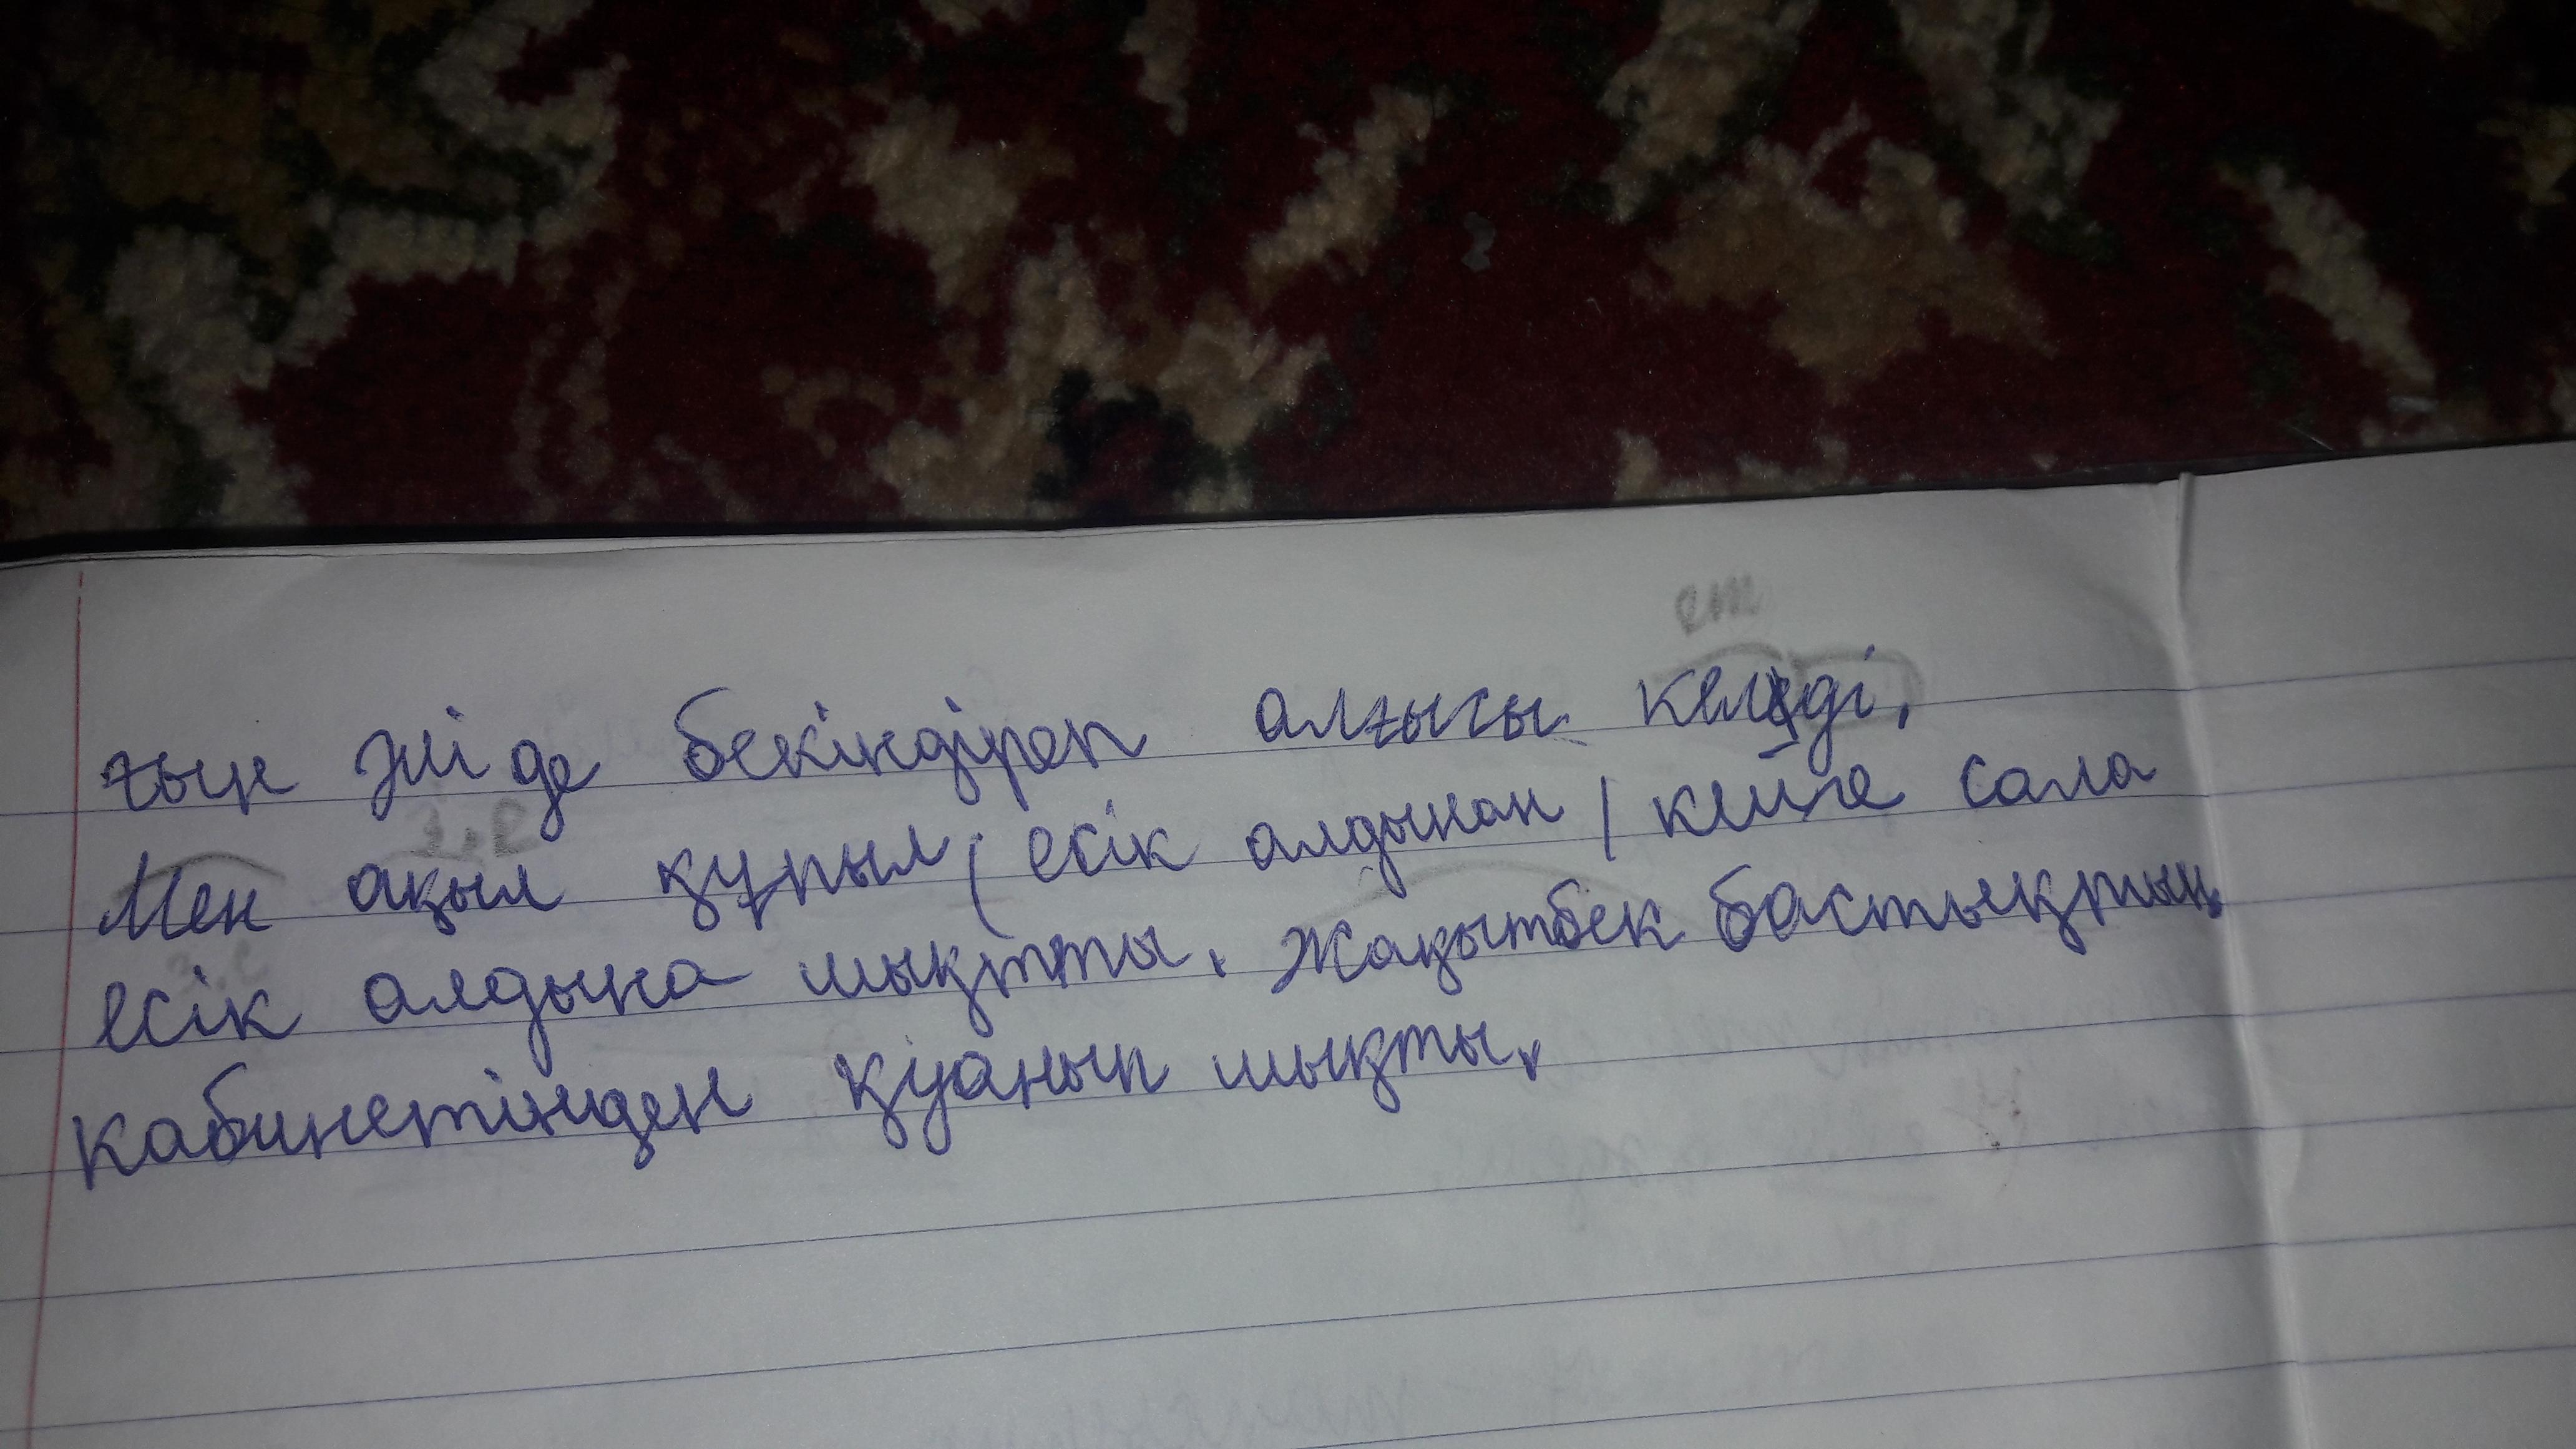 ет
әлі де бекіндіреп алғысы келеді.
Мен ақыл құрыл, есік алдынан / келіге сала
есік алдыңа шықтты. Жақытбек бастықтың
кабинетінден қуанып шықты.